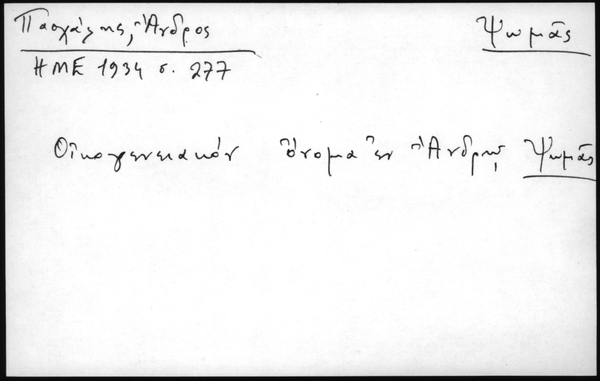 Πασχάλης, Ἄνδρος
Ψωμᾶς
ΗΜΕ 1934 σ. 277
Οἰκογενειακόν ὄνομα ἐν Ἄνδρῳ Ψωμᾶς